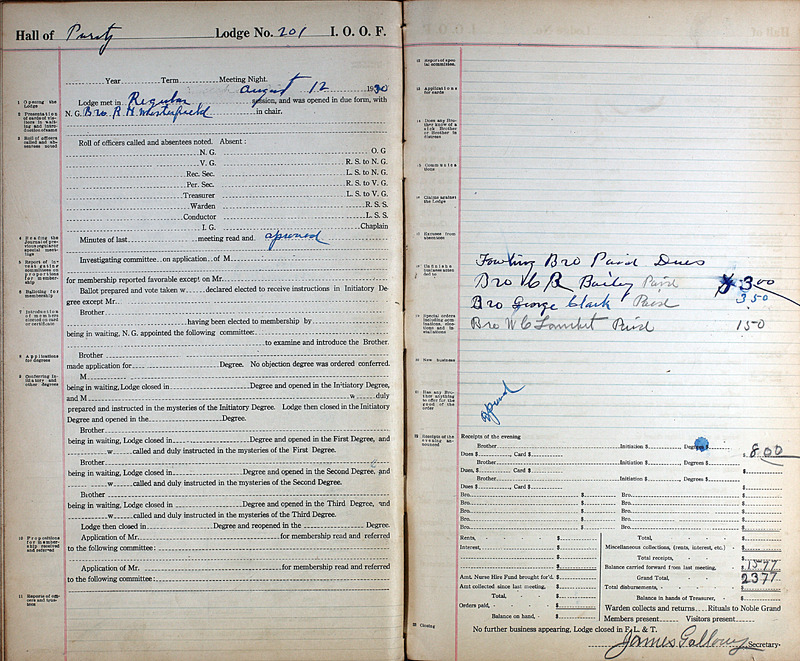 Hall of Purity Lodge No. 201 I. O. O. F.
Year Term Meeting Night.
august 12 1930
1 Opening the Lodge
Lodge met in Regular session, and was opened in due form, with
N. G. Bro. R H Westerfield in chair.
2 Presentation of cards of visitors in waiting and introduction of same
3 Roll of officers called and absentees noted
Roll of officers called and absentees noted. Absent:
N. G. O. G
V. G. R. S. to N. G.
Rec. Sec. L. S. to N. G.
Per. Sec. R. S. to V. G.
Treasurer L. S. to V. G.
Warden R. S. S.
Conductor L. S. S.
I. G. Chaplain
4 Reading the Journal of previous regular or special meetings
Minutes of last meeting read and aproved
5 Report of investigating committees on propositions for membership
Investigating committee on application of M
for membership reported favorable except on Mr.
6 Balloting for membership
Ballot prepared and vote taken w declared elected to receive instructions in Initiatory De-
gree except Mr.
7 Introduction of members elected on card or certificate
Brother
having been elected to membership by
being in waiting, N. G. appointed the following committee
to examine and introduce the Brother.
8 Applications for degrees
Brother
made application for Degree. No objection degree was ordered conferred.
9 Conferring Initiatory and other degrees
M
being in waiting, Lodge closed in Degree and opened in the Initiatory Degree,
and M w duly
prepared and instructed in the mysteries of the Initiatory Degree. Lodge then closed in the Initiatory
Degree and opened in the Degree.
Brother
being in waiting, Lodge closed in Degree and opened in the First Degree, and
w called and duly instructed in the mysteries of the First Degree.
Brother
being in waiting, Lodge closed in Degree and opened in the Second Degree, and
w called and duly instructed in the mysteries of the Second Degree.
Brother
being in waiting, Lodge closed in Degree and opened in the Third Degree, and
w called and duly instructed in the mysteries of the Third Degree.
Lodge then closed in Degree and reopened in the Degree.
10 Propositions for membership received and referred
Application of Mr. for membership read and referred
to the following committee:
Application of Mr. for membership read and referred
to the following committee:
11 Reports of officers and trustees
12 Reports of special committee.
13 Applications for cards
14 Does any Brother know of a sick Brother or Brother in distress
15 Communications
16 Claims against the Lodge
17 Excuses from absentees
18 Unfinished business attended to
Fowling Bro Paid Dues
Bro W R Bailey Paid $ 3.00
Bro George Clark Paid 3 50
19 Special orders including nominations, elections and installations
Bro W C Lambet Paid 150
20 New business
21 Has any Brother anything to offer for the good of the order
22 Receipts of the evening announced
Receipts of the evening
Brother Initiation $ Degrees $
Dues $ , Card $ $ 8.00
Brother Initiation $ Degrees $
Dues $ , Card $ $
Brother Initiation $ Degrees $
Dues $ , Card $ $
Bro. $ Bro. $
Bro. $ Bro. $
Bro. $ Bro. $
Bro. $ Bro. $
Bro. $ Bro. $
Rents, $ Total, $
Interest, $ Miscellaneous collections, (rents, interest, etc.) $
$ Total receipts, $
$ Balance carried forward from last meeting, $ 1577
Amt. Nurse Hire Fund brought for'd. $ Grand Total, $ 2377
Amt collected since last meeting, $ Total disbursements, $
Total, $ Balance in hands of Treasurer, $
Orders paid, $ Warden collects and returns Rituals to Noble Grand
Balance on hand, $ Members present Visitors present
23 Closing
No further business appearing, Lodge closed in F., L. & T.
James Galloway Secretary